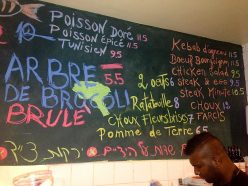 POISSON Doré 11.5
POISSON ÉPICÉ 11.5
TUNISIEN 9.5
ARBRE 5.5
DE BROCOLI
BRULÉ
2 oeufs 6
Ratatouille 8
CHOUX Fleurs
Pomme de Terre 6.5
Kebab d'agneau 11.5
Boeuf Bourguignon 11.5
CHICKEN Salad 9.5
Steak & egg 9.5
Steak Minute 10.5
CHOUX 12.5
FARCIS